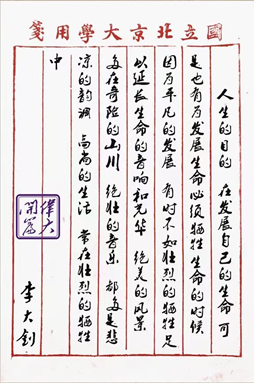 國立北京大學用箋
人生的目的 在发展自己的生命 可
是也有为发展生命必须牺牲生命的时候
因为平凡的发展 有时不如壮烈的牺牲足
以延长生命的音响和光华 绝美的风景
多在奇险的山川 绝壮的音乐 都多是悲
凉的韵调 高尚的生活 常在壮烈的牺牲
中
李大钊